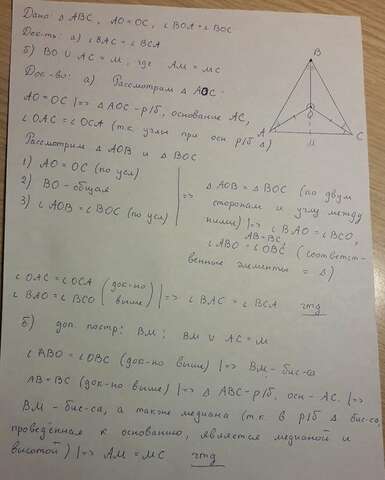 Дано: △ ABC, AO=OC, ∠BOA=∠BOC
Док-ть: а) ∠BAC = ∠BCA
б) BO ∪ AC = M, где AM = MC
Док-во: а) Рассмотрим △ AOC -
AO=OC |=> △AOC-р/б, основание AC,
∠OAC=∠OCA (т.к. углы при осн. р/б △)
Рассмотрим △ AOB и △ BOC
1) AO=OC (по усл)
2) BO-общая
3) ∠AOB=∠BOC (по усл)
=> △AOB=△BOC (по двум
сторонам и углу между
ними) |=> ∠BAO=∠BCO,
AB=BC,
∠ABO=∠OBC (соответст-
венные элементы = △)
∠OAC=∠OCA (док-но
∠BAO=∠BCO выше) |=> ∠BAC = ∠BCA чтд
б) доп постр: BM; BM ∪ AC=M
∠ABO=∠OBC (док-но выше) |=> BM-бис-са
AB=BC (док-но выше) |=> △ ABC-р/б, осн-AC. |=>
BM-бис-са, а также медиана (т.к в р/б △ бис-са,
проведённая к основанию, является медианой и
высотой) |=> AM=MC чтд
B
O
A
M
C